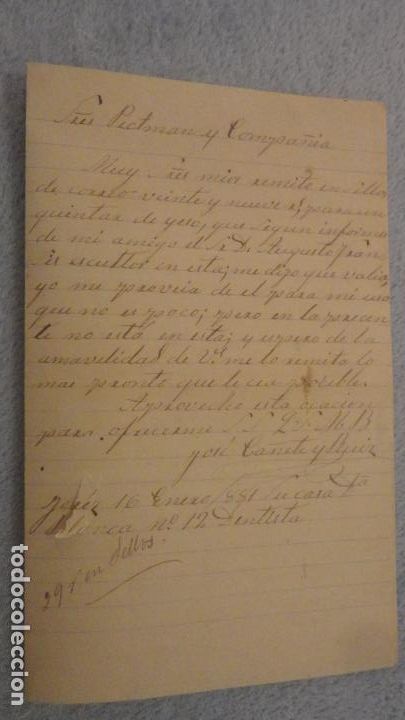 Sres Pictman y Compañia
Muy Sres mios remito en sellos
de correo veinte y nueve rs para un
quintar de yeso, que segun informes
de mi amigo el Sr D. Augusto Fran
es escultor en esta; me dijo que valia,
yo me proveia de el para mi uso
que no es poco; pero en la precen
te no está en esta; y espero de la
amavilidad de Vs. me lo remita lo
mas pronto que le sea posible.
Aprovecho esta ocacion
para ofrecerme S. S. Q. S. M. B
José Cañete y Ruiz
Jeréz 16 Enero 1881 Su casa
Blanca nº 12 Dentista
29 r en sellos.
todocoleccion